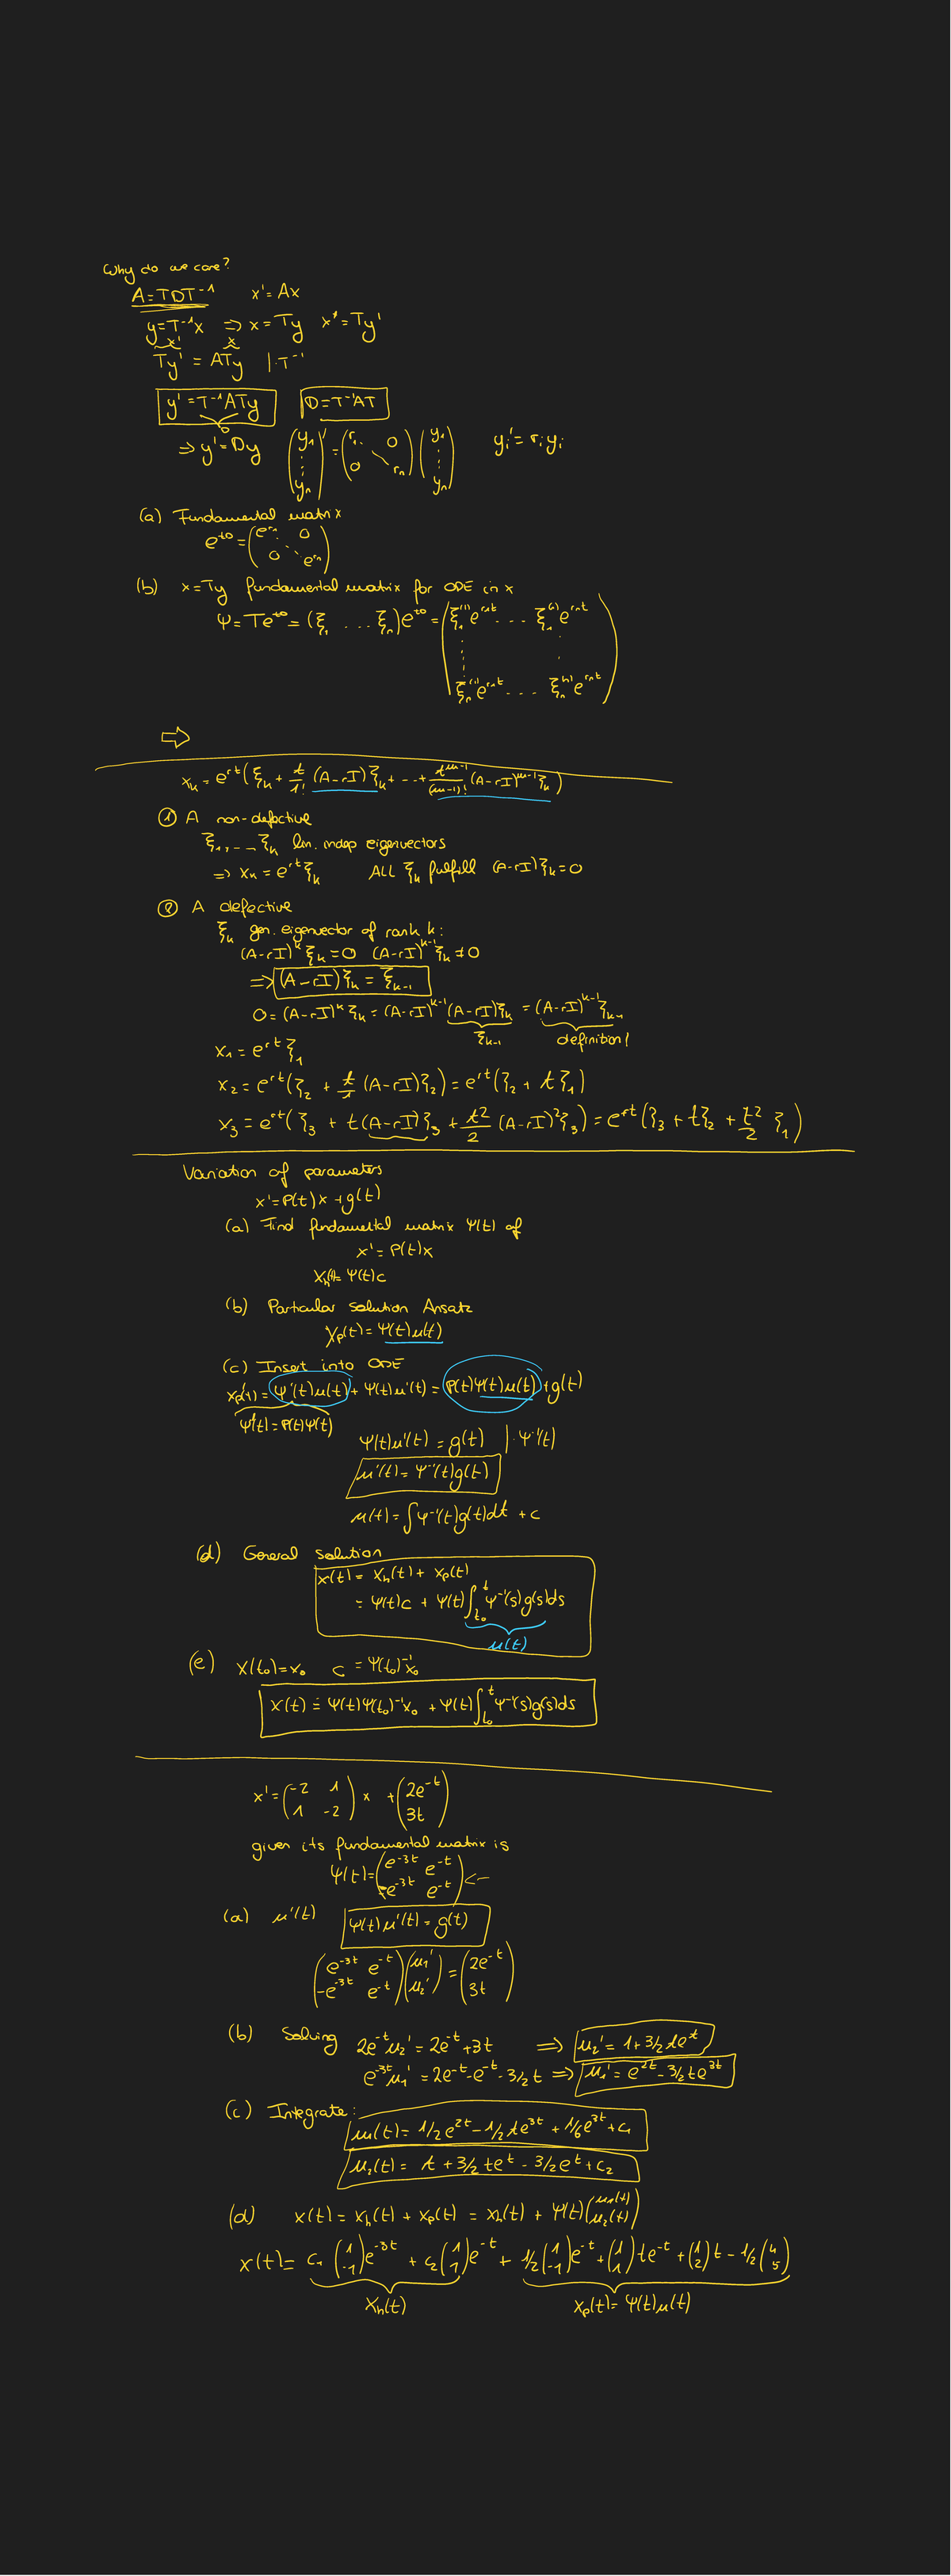 Why do we care?
A=TDT⁻¹   x'=Ax
y=T⁻¹x ⇒ x=Ty   x'=Ty'
x'   x
Ty' = ATy   |·T⁻¹
y'=T⁻¹ATy   D=T⁻¹AT
D
⇒ y'=Dy   (y₁ ⋮ yₙ)' = (r₁ 0 ⋱ 0 rₙ)(y₁ ⋮ yₙ)   yᵢ'=rᵢyᵢ
(a) Fundamental matrix
e^{tD} = (e^{r₁} 0 ⋱ 0 e^{rₙ})
(b) x=Ty fundamental matrix for ODE in x
Ψ=Te^{tD}=(ξ₁ ... ξₙ)e^{tD}=(ξ₁⁽¹⁾e^{r₁t} ... ξ₁⁽ⁿ⁾e^{rₙt}
ξₙ⁽¹⁾e^{r₁t} ... ξₙ⁽ⁿ⁾e^{rₙt})
⇨
xₖ = e^{rt}(ξₖ + t/1! (A-rI)ξₖ + ... + t^{m-1}/(m-1)! (A-rI)^{m-1}ξₖ)
① A non-defective
ξ₁, ... ξₖ lin. indep eigenvectors
⇒ xₖ = e^{rt}ξₖ   ALL ξₖ fulfill (A-rI)ξₖ=0
② A defective
ξₖ gen. eigenvector of rank k:
(A-rI)^k ξₖ=0   (A-rI)^{k-1}ξₖ≠0
⇒ (A-rI)ξₖ = ξₖ₋₁
0=(A-rI)^k ξₖ=(A-rI)^{k-1}(A-rI)ξₖ = (A-rI)^{k-1}ξₖ₋₁
ξₖ₋₁   definition!
x₁=e^{rt}ξ₁
x₂=e^{rt}(ξ₂ + t/1 (A-rI)ξ₂)=e^{rt}(ξ₂ + tξ₁)
x₃=e^{rt}(ξ₃ + t(A-rI)ξ₃ + t²/2 (A-rI)²ξ₃)=e^{rt}(ξ₃ + tξ₂ + t²/2 ξ₁)
Variation of parameters
x'=P(t)x+g(t)
(a) Find fundamental matrix Ψ(t) of
x'=P(t)x
xₕ(t)=Ψ(t)c
(b) Particular solution Ansatz
xₚ(t)=Ψ(t)u(t)
(c) Insert into ODE
xₚ'(t)=Ψ'(t)u(t)+Ψ(t)u'(t)=P(t)Ψ(t)u(t)+g(t)
Ψ'(t)=P(t)Ψ(t)
Ψ(t)u'(t)=g(t)   |·Ψ⁻¹(t)
u'(t)=Ψ⁻¹(t)g(t)
u(t)=∫Ψ⁻¹(t)g(t)dt +c
(d) General solution
x(t)= xₕ(t)+ xₚ(t)
= Ψ(t)c + Ψ(t)∫_{t₀}^{t}Ψ⁻¹(s)g(s)ds
u(t)
(e) x(t₀)=x₀   c=Ψ(t₀)⁻¹x₀
x(t) = Ψ(t)Ψ(t₀)⁻¹x₀ + Ψ(t)∫_{t₀}^{t}Ψ⁻¹(s)g(s)ds
x'=(-2 1 / 1 -2)x + (2e^{-t} / 3t)
given its fundamental matrix is
Ψ(t)=(e^{-3t} e^{-t} / -e^{-3t} e^{-t}) <--
(a) u'(t)   Ψ(t)u'(t)=g(t)
(e^{-3t} e^{-t} / -e^{-3t} e^{-t})(u₁' / u₂')=(2e^{-t} / 3t)
(b) Solving 2e^{-t}u₂'=2e^{-t}+3t ⇒ u₂'=1+3/2 te^{t}
e^{-3t}u₁'=2e^{-t}-e^{-t}-3/2 t ⇒ u₁'=e^{2t}-3/2 te^{3t}
(c) Integrate:
u₁(t)=1/2 e^{2t}-1/2 te^{3t}+1/6 e^{3t}+c₁
u₂(t)= t+3/2 te^{t}-3/2 e^{t}+c₂
(d) x(t)=xₕ(t)+xₚ(t)=xₕ(t)+Ψ(t)(u₁(t) / u₂(t))
x(t)=c₁(1 / -1)e^{-3t}+c₂(1 / 1)e^{-t}+1/2(1 / -1)e^{-t}+(1 / 1)te^{-t}+(1 / 2)t-1/3(4 / 5)
xₕ(t)   xₚ(t)=Ψ(t)u(t)